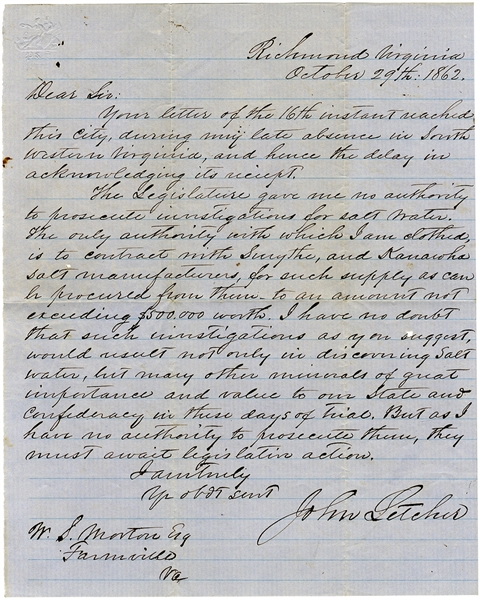 Richmond Virginia
October 29th. 1862.
Dear Sir:
Your letter of the 16th instant reached
this city, during my late absence in South
western Virginia, and hence the delay in
acknowledging its receipt.
The Legislature gave me no authority
to prosecute investigations for salt water.
The only authority with which I am clothed,
is to contract with Smythe, and Kanawha
salt manufacturers, for such supply as can
be procured from them - to an amount not
exceeding $500.000 worth. I have no doubt
that such investigations as you suggest,
would result not only in discovering Salt
water, but many other minerals of great
importance and value to our State and
Confederacy in these days of trial. But as I
have no authority to prosecute them, they
must await legislative action.
I am truly
Yr obdt servt
John Letcher
W. S. Morton Esq
Farmville
Va